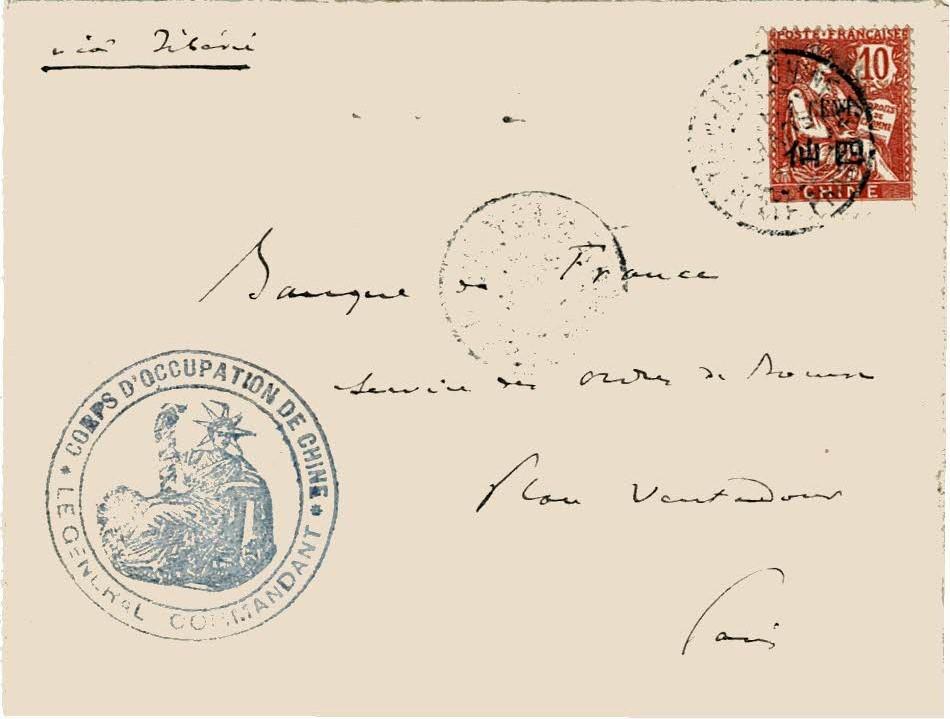 via Sibérie
POSTE FRANÇAISE
10
DROITS DE L'HOMME
仙四
CHINE
Banque de France
Service des ordres de Bourse
Place Ventadour
Paris
* CORPS D'OCCUPATION DE CHINE *
LE GENERAL COMMANDANT